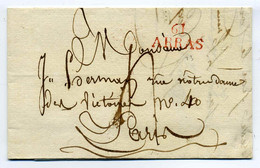 61
ARRAS
A Monsieur
rue notre dame
des Victoires no. 40
Paris